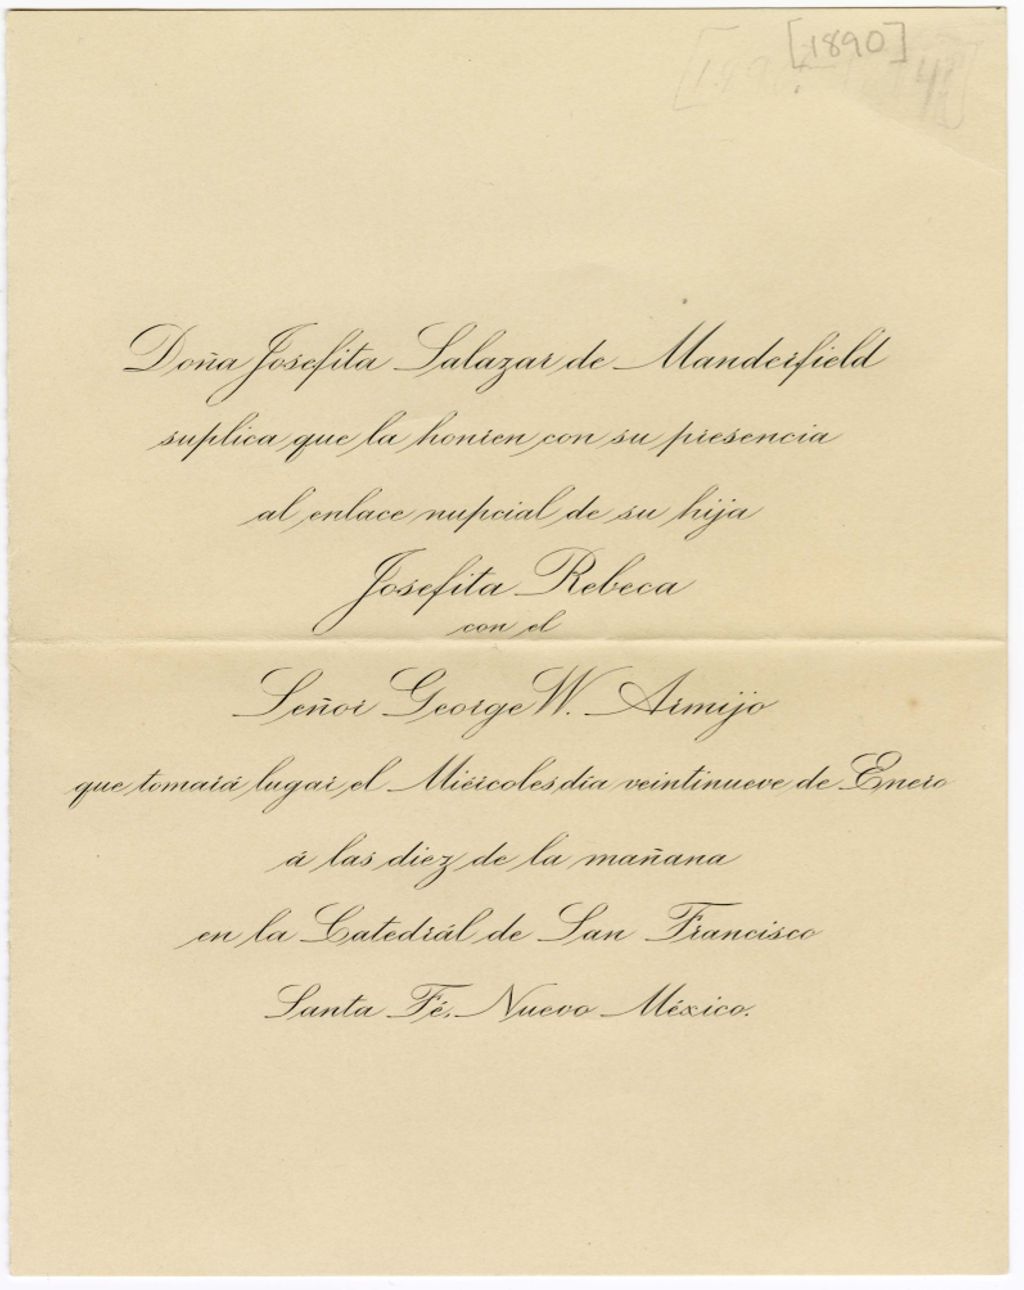 [1890]
Doña Josefita Salazar de Manderfield
suplica que la honren con su presencia
al enlace nupcial de su hija
Josefita Rebeca
con el
Señor George W. Armijo
que tomará lugar el Miércoles día veintinueve de Enero
á las diez de la mañana
en la Catedrál de San Francisco
Santa Fé, Nuevo México.